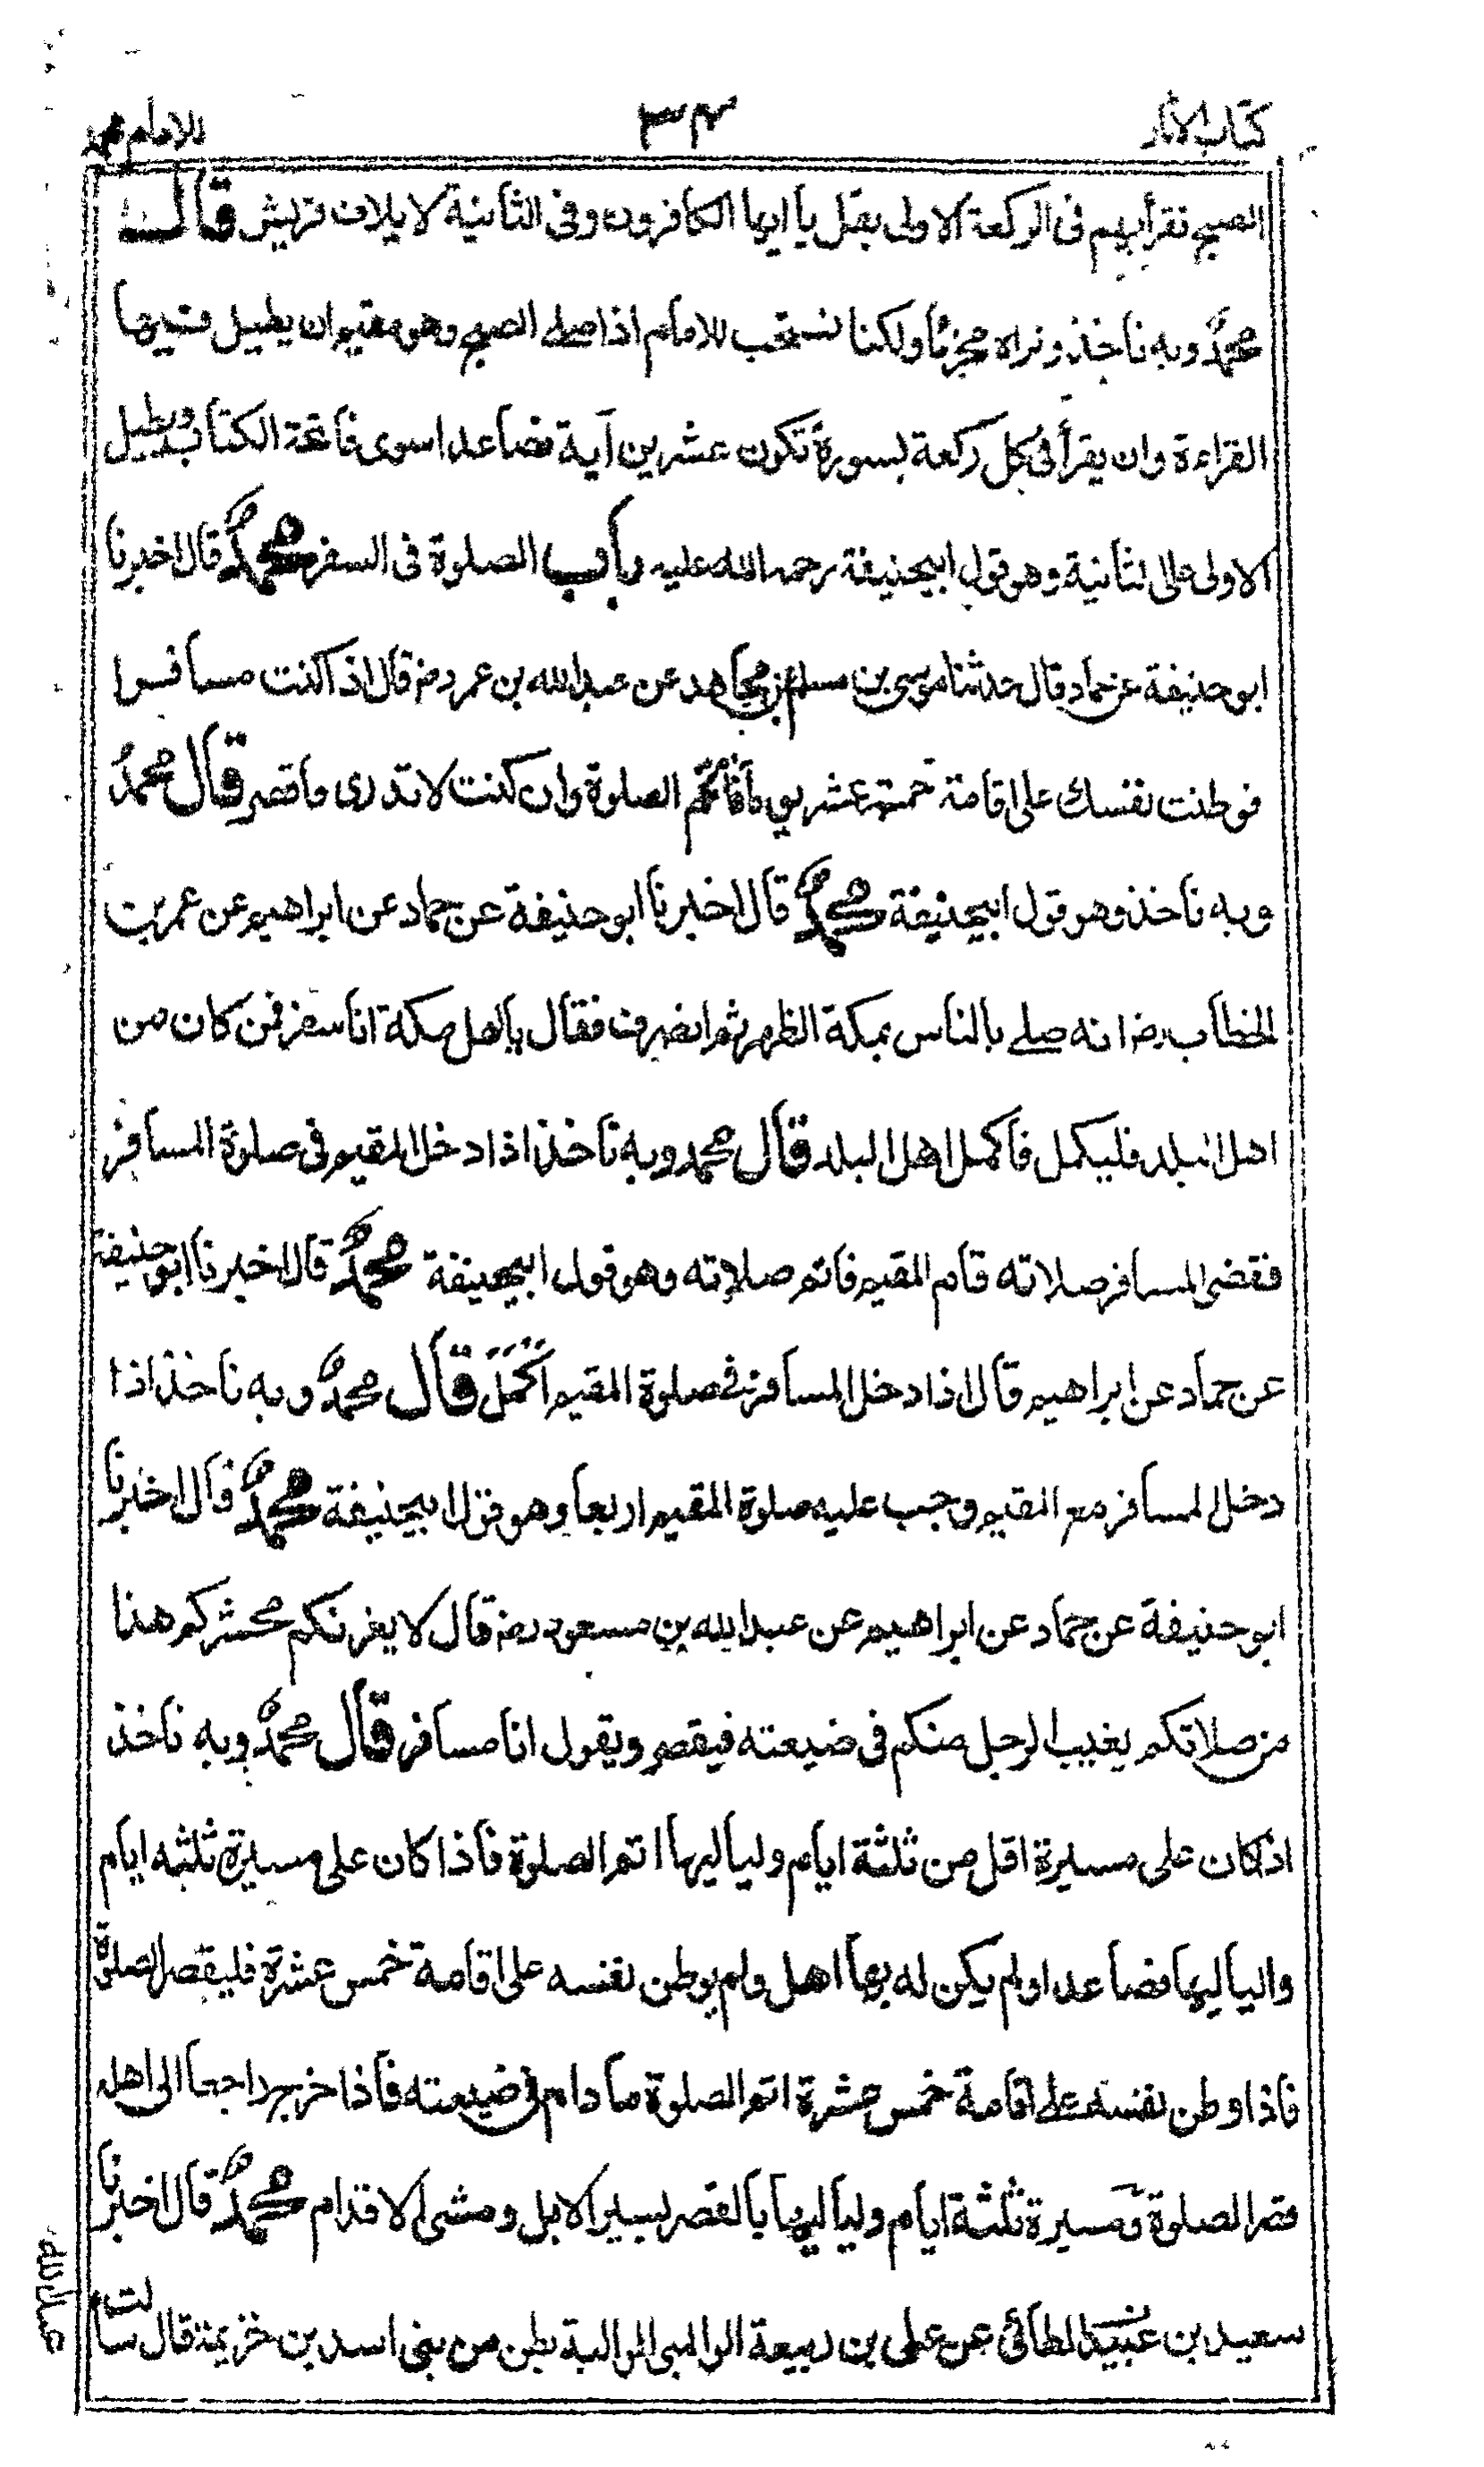 كتاب الآثار
٣٤
للامام محمد
الصبح فقرأ بهم فى الركعة الاولى بقل يا ايها الكافرون وفى الثانية لايلاف قريش قال
محمدؒ وبه ناخذ ونراه مجزئا ولكنا نستحب للامام اذا صلے الصبح وهو مقيم ان يطيل فيها
القراءة وان يقرأ فى كل ركعة بسورة تكون عشرين آية فصاعدا سوى فاتحة الكتاب ويطيل
الاولى على الثانية وهو قول ابيحنيفة رحمه الله عليه باب الصلوة فى السفر محمدؒ قال اخبرنا
ابو حنيفة عن حماد قال حدثنا موسى بن مسلم عن مجاهد عن عبد الله بن عمر رضؓ قال اذا كنت مسافرا
فوطنت نفسك على اقامة خمسة عشر يوما فاتمم الصلوة وان كنت لا تدرى فاقصر قال محمدؒ
وبه ناخذ وهو قول ابيحنيفة محمدؒ قال اخبرنا ابو حنيفة عن حماد عن ابراهيم عن عمر بن
الخطاب رضؓ انه صلے بالناس بمكة الظهر ثم انصرف فقال يا اهل مكة انا سفر فمن كان من
اهل البلد فليكمل فاكمل اهل البلد قال محمد وبه ناخذ اذا دخل المقيم فى صلوة المسافر
فقضى المسافر صلاته قام المقيم فاتم صلاته وهو قول ابيحنيفة محمدؒ قال اخبرنا ابو حنيفة
عن حماد عن ابراهيم قال اذا دخل المسافر فے صلوة المقيم اكمل قال محمدؒ وبه ناخذ اذا
دخل المسافر مع المقيم وجب عليه صلوة المقيم اربعا وهو قول ابيحنيفة محمدؒ قال اخبرنا
ابو حنيفة عن حماد عن ابراهيم عن عبد الله بن مسعود رضؓ قال لا يغرنكم محشركم هذا
من صلاتكم يغيب الرجل منكم فى ضيعته فيقصر ويقول انا مسافر قال محمدؒ وبه ناخذ
اذا كان على مسيرة اقل من ثلثة ايام ولياليها اتم الصلوة فاذا كان على مسيرة ثلثه ايام
ولياليها فصاعدا ولم يكن له بها اهل ولم يوطن نفسه على اقامة خمس عشرة فليقصر الصلوة
فاذا وطن نفسه علے اقامة خمس عشرة اتم الصلوة ما دام فى ضيعته فاذا خرج راجعا الى اهله
قصر الصلوة ومسيرة ثلثة ايام ولياليها بالقصر بسير الابل ومشى الاقدام محمدؒ قال اخبرنا
سعيد بن عبيد الطائى عن على بن ربيعة الوالبى الوالبة بطن من بنى اسد بن خزيمة قال سالت
عبد الله